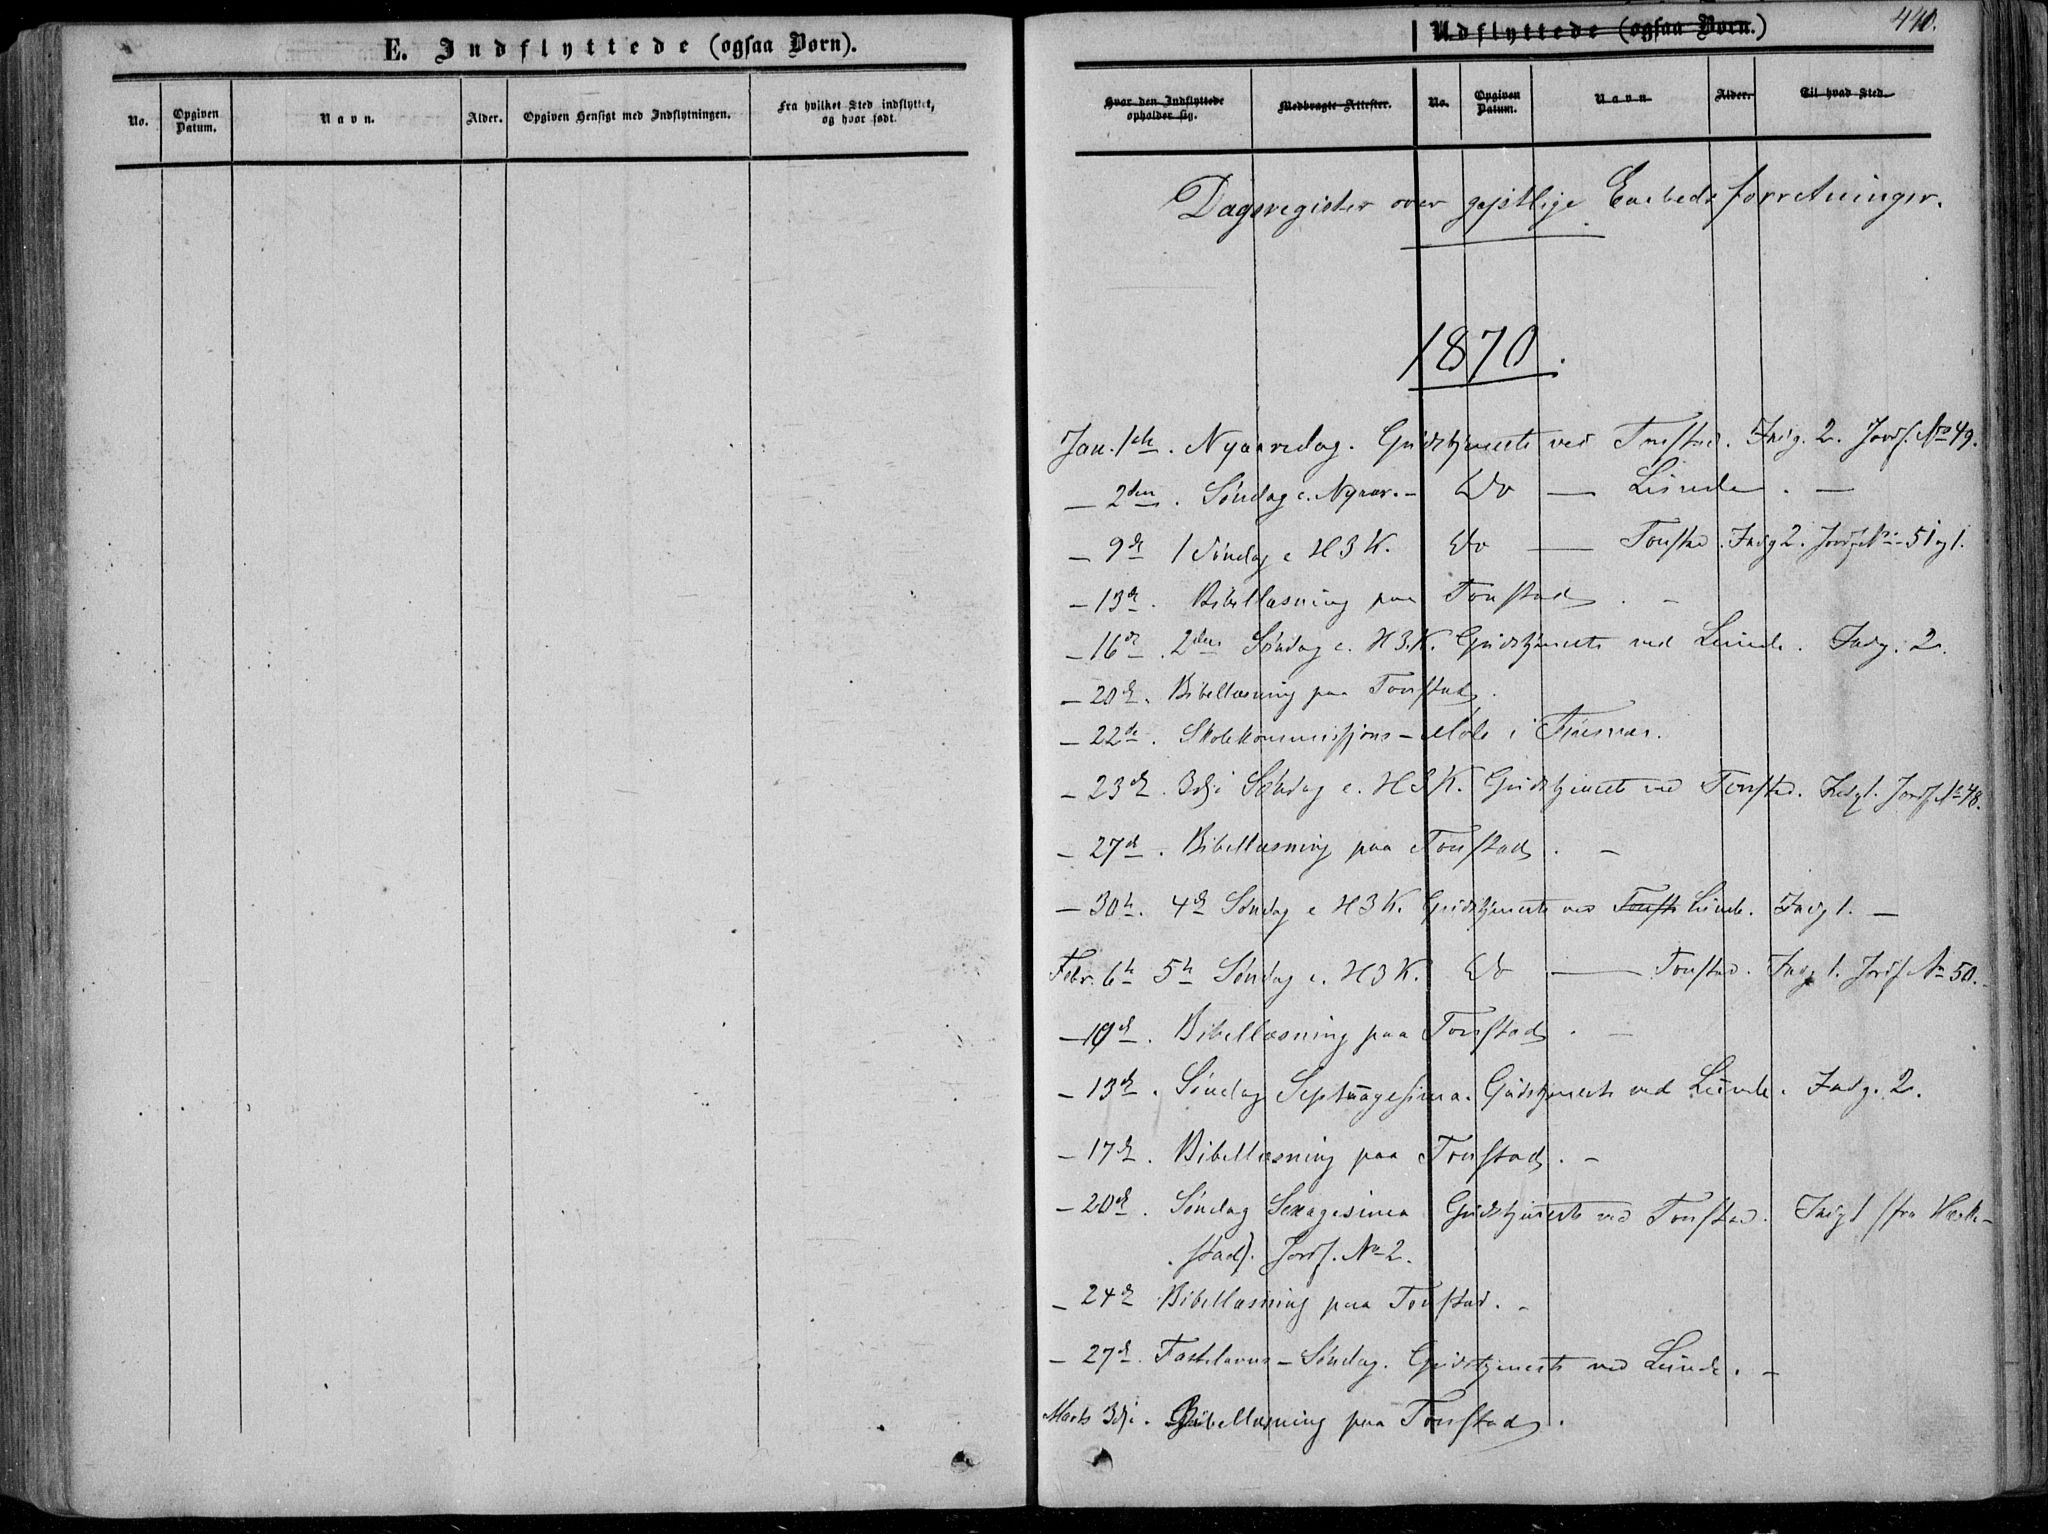 E. Indflyttede (ogsaa Børn).
No. Opgiven Datum. Navn. Alder. Opgiven Hensigt med Indflytningen. Fra hvilket Sted indflyttet, og hvor født.
Udflyttede (ogsaa Børn.)
440.
Hvor den Indflyttede opholder sig. Medbragte Attester. No. Opgiven Datum. Navn Alder. Til hvad Sted.
Dagsregister over gejstlige Embedsforretninger.
1870.
Jan. 1ste. Nyaarsdag. Gudstjeneste ved Tonstad. Indg. 2. Jordf. No 49.
– 2den. Søndag e. Nyaar. – Do — Lunde. —
– 9de 1 Søndag e H 3 K. Do — Tonstad. Indg 2. Jordf. No 51 og 1.
– 13de. Bibellæsning paa Tonstad. –
– 16de. 2den Søndag e. H 3. K. Gudstjeneste ved Lunde. Indg. 2.
– 20de. Bibellæsning paa Tonstad.
– 22de. Skolekommissjons-Møde i
– 23de. 3dje Søndag e. H 3 K. Gudstjeneste ved Tonstad. Indg 1. Jordf. No 48.
– 27de. Bibellæsning paa Tonstad. –
– 30te. 4de Søndag e H 3 K. Gudstjeneste ved Tonst Lunde. Indg 1. —
Febr. 6te 5te Søndag e. H 3 K. Do — Tonstad. Indg 1. Jordf. No 50.
– 10de. Bibellæsning paa Tonstad. –
– 13de. Søndag Septuagesima. Gudstjeneste ved Lunde. Indg. 2.
– 17de. Bibellæsning paa Tonstad. –
– 20de. Søndag Sexagesima Gudstjeneste ved Tonstad. Indg 1 (fra
stad). Jordf. No 2.
– 24de Bibellæsning paa Tonstad. –
– 27de. Fastelavns-Søndag. Gudstjeneste ved Lunde. –
Marts 3dje. Bibellæsning paa Tonstad.